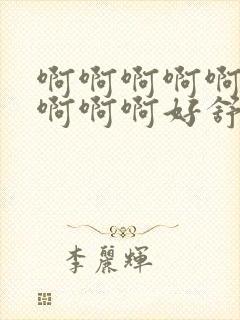 啊啊啊啊啊
啊啊啊好舒
李麗輝